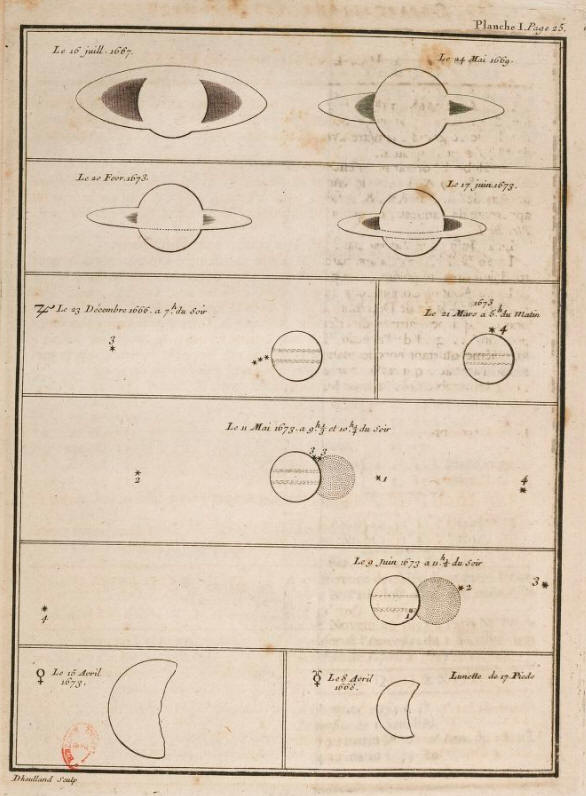 Planche I. Page 25.
Le 16 juill. 1667.
Le 24 Mai 1669.
Le 20 Fevr. 1673.
Le 17 juin. 1673.
♃ Le 23 Décembre 1666. a 7.h du Soir
3
1673
Le 21 Mars a 5.h du Matin
4
Le 11 Mai 1673. a 9h ½ et 10h ¼ du Soir
3 3
2
1
4
Le 9 Juin 1673 a 11h ¼ du Soir
2
3
1
4
♀ Le 16 Avril
1673.
Le 8 Avril
1668.
Lunette de 17 Pieds
Dheulland Sculp.